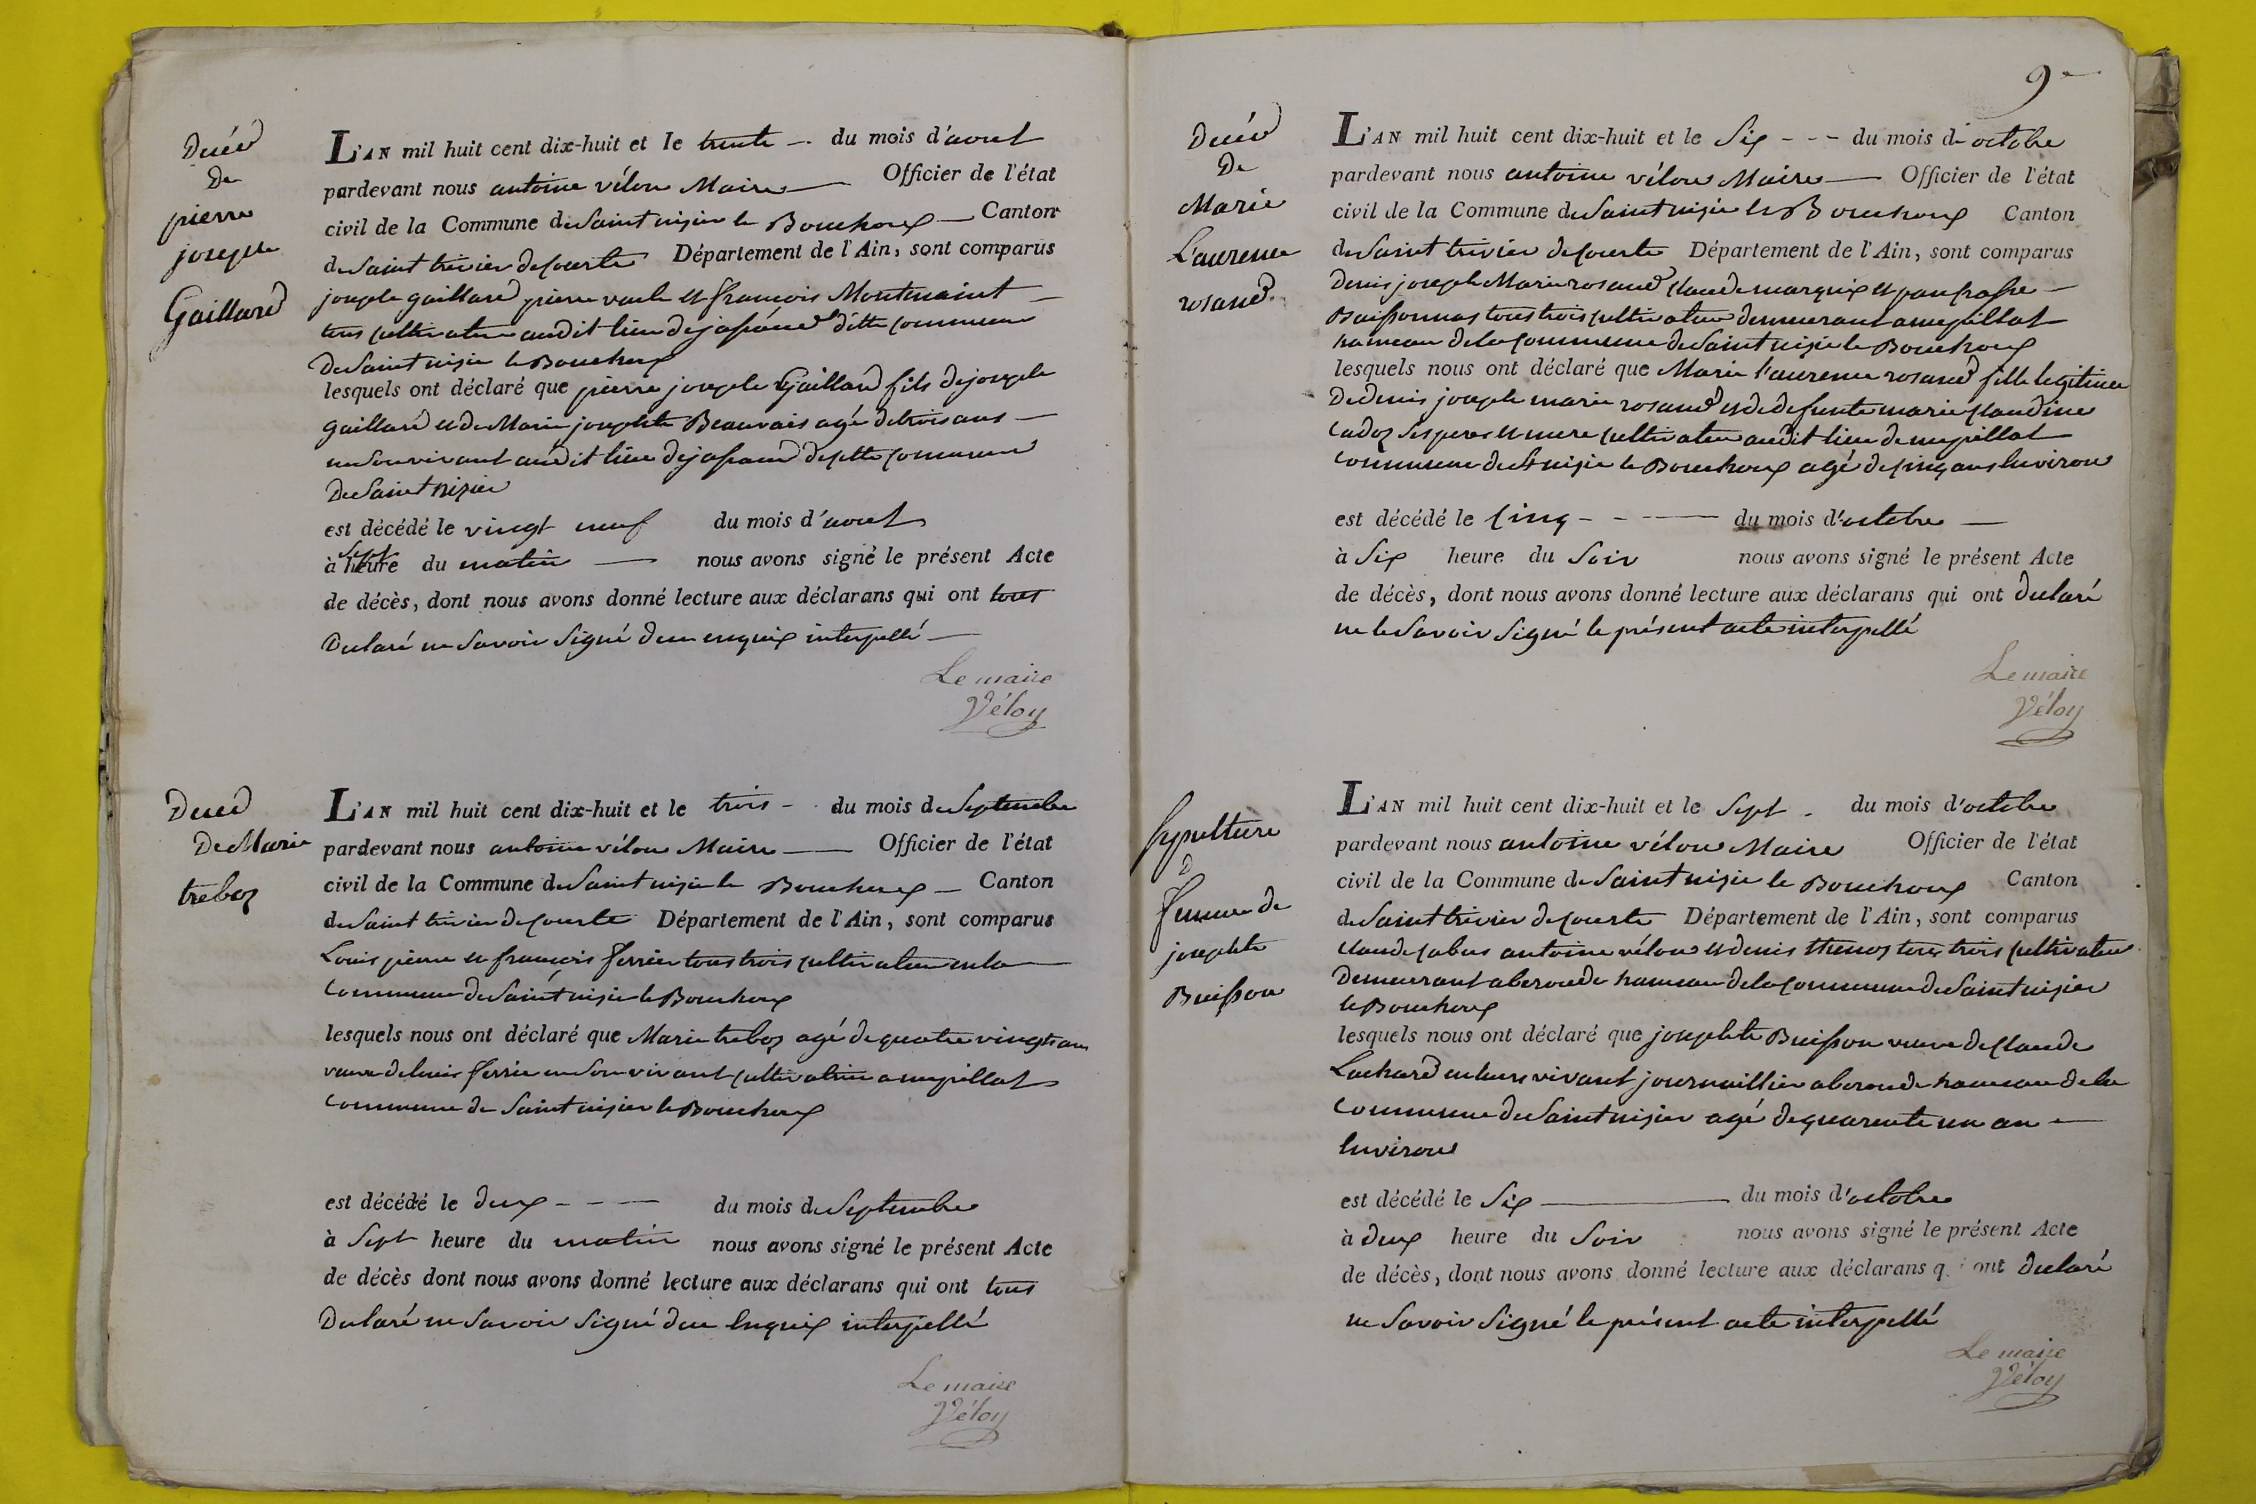 Décés
De
pierre
joseph
Gaillard
L'AN mil huit cent dix-huit et le trente du mois d'aout
pardevant nous antoine vélon Maire Officier de l'état
civil de la Commune de Saint nizier le Bouchoux Canton
de Saint trivier de Courte Département de l'Ain, sont comparus
joseph gaillard pierre et françois Montmaint
tous cultivateur audit lieu de cette commune
De Saint nizier le Bouchoux
lesquels ont déclaré que pierre joseph Gaillard fils de joseph
gaillard et de Marie josephte Beauvais agé de trois ans
en son vivant audit lieu de cette commune
De Saint nizier
est décédé le vingt neuf du mois d'aout
à sept heure du matin nous avons signé le présent Acte
de décès, dont nous avons donné lecture aux déclarans qui ont tous
Declaré ne Savoir Signé de ce enquix interpellé
Le maire
Véloy
Decés
De Marie
treboz
L'AN mil huit cent dix-huit et le trois du mois de Septembre
pardevant nous antoine vélon Maire Officier de l'état
civil de la Commune de Saint nizier le Bouchoux Canton
de Saint trivier de Courte Département de l'Ain, sont comparus
Louis pierre et françois ferrier tous trois cultivateur en la
Commune de Saint nizier le Bouchoux
lesquels nous ont déclaré que Marie treboz agé de quatre vingts ans
veuve de louis ferrier en Son vivant cultivatrice a mepillat
Commune de Saint nizier le Bouchoux
est décédé le deux du mois de Septembre
à Sept heure du matin nous avons signé le présent Acte
de décès dont nous avons donné lecture aux déclarans qui ont tous
Declaré ne Savoir Signé de ce Enquix interpellé
Le maire
Véloy
9
Décés
De
Marie
Laurence
rosand
L'AN mil huit cent dix-huit et le Six du mois d'octobre
pardevant nous antoine vélon Maire Officier de l'état
civil de la Commune de Saint nizier le Bouchoux Canton
de Saint trivier de Courte Département de l'Ain, sont comparus
Denis joseph Marie rosand Claude marquix et
Buissonnas tous trois cultivateur demeurant a mepillat
hameau de la Commune de Saint nizier le Bouchoux
lesquels nous ont déclaré que Marie l'aurence rosand fille legitime
De denis joseph marie rosand et de defunte marie Claudine
Cadoz Ses pere et mere cultivateur audit lieu de mepillat
Commune de St nizier le Bouchoux agé de Cinq ans Environ
est décédé le Cinq du mois d'octobre
à Six heure du Soir nous avons signé le présent Acte
de décès, dont nous avons donné lecture aux déclarans qui ont Declaré
ne le Savoir Signé le présent acte interpellé
Le maire
Véloy
Sepulture
D
femme de
josephte
Buisson
L'AN mil huit cent dix-huit et le Sept du mois d'octobre
pardevant nous antoine vélon Maire Officier de l'état
civil de la Commune de Saint nizier le Bouchoux Canton
de Saint trivier de Courte Département de l'Ain, sont comparus
Claude antoine vélon et denis thenoz tous trois cultivateur
Demeurant a hameau de la Commune de Saint nizier
le Bouchoux
lesquels nous ont déclaré que josephte Buisson veuve de Claude
Lachard en leurs vivant journaillier a hameau de la
Commune de Saint nizier agé de quarente un an
Environ
est décédé le Six du mois d'octobre
à deux heure du Soir nous avons signé le présent Acte
de décès, dont nous avons donné lecture aux déclarans q i ont Declaré
ne Savoir Signé le présent acte interpellé
Le maire
Véloy